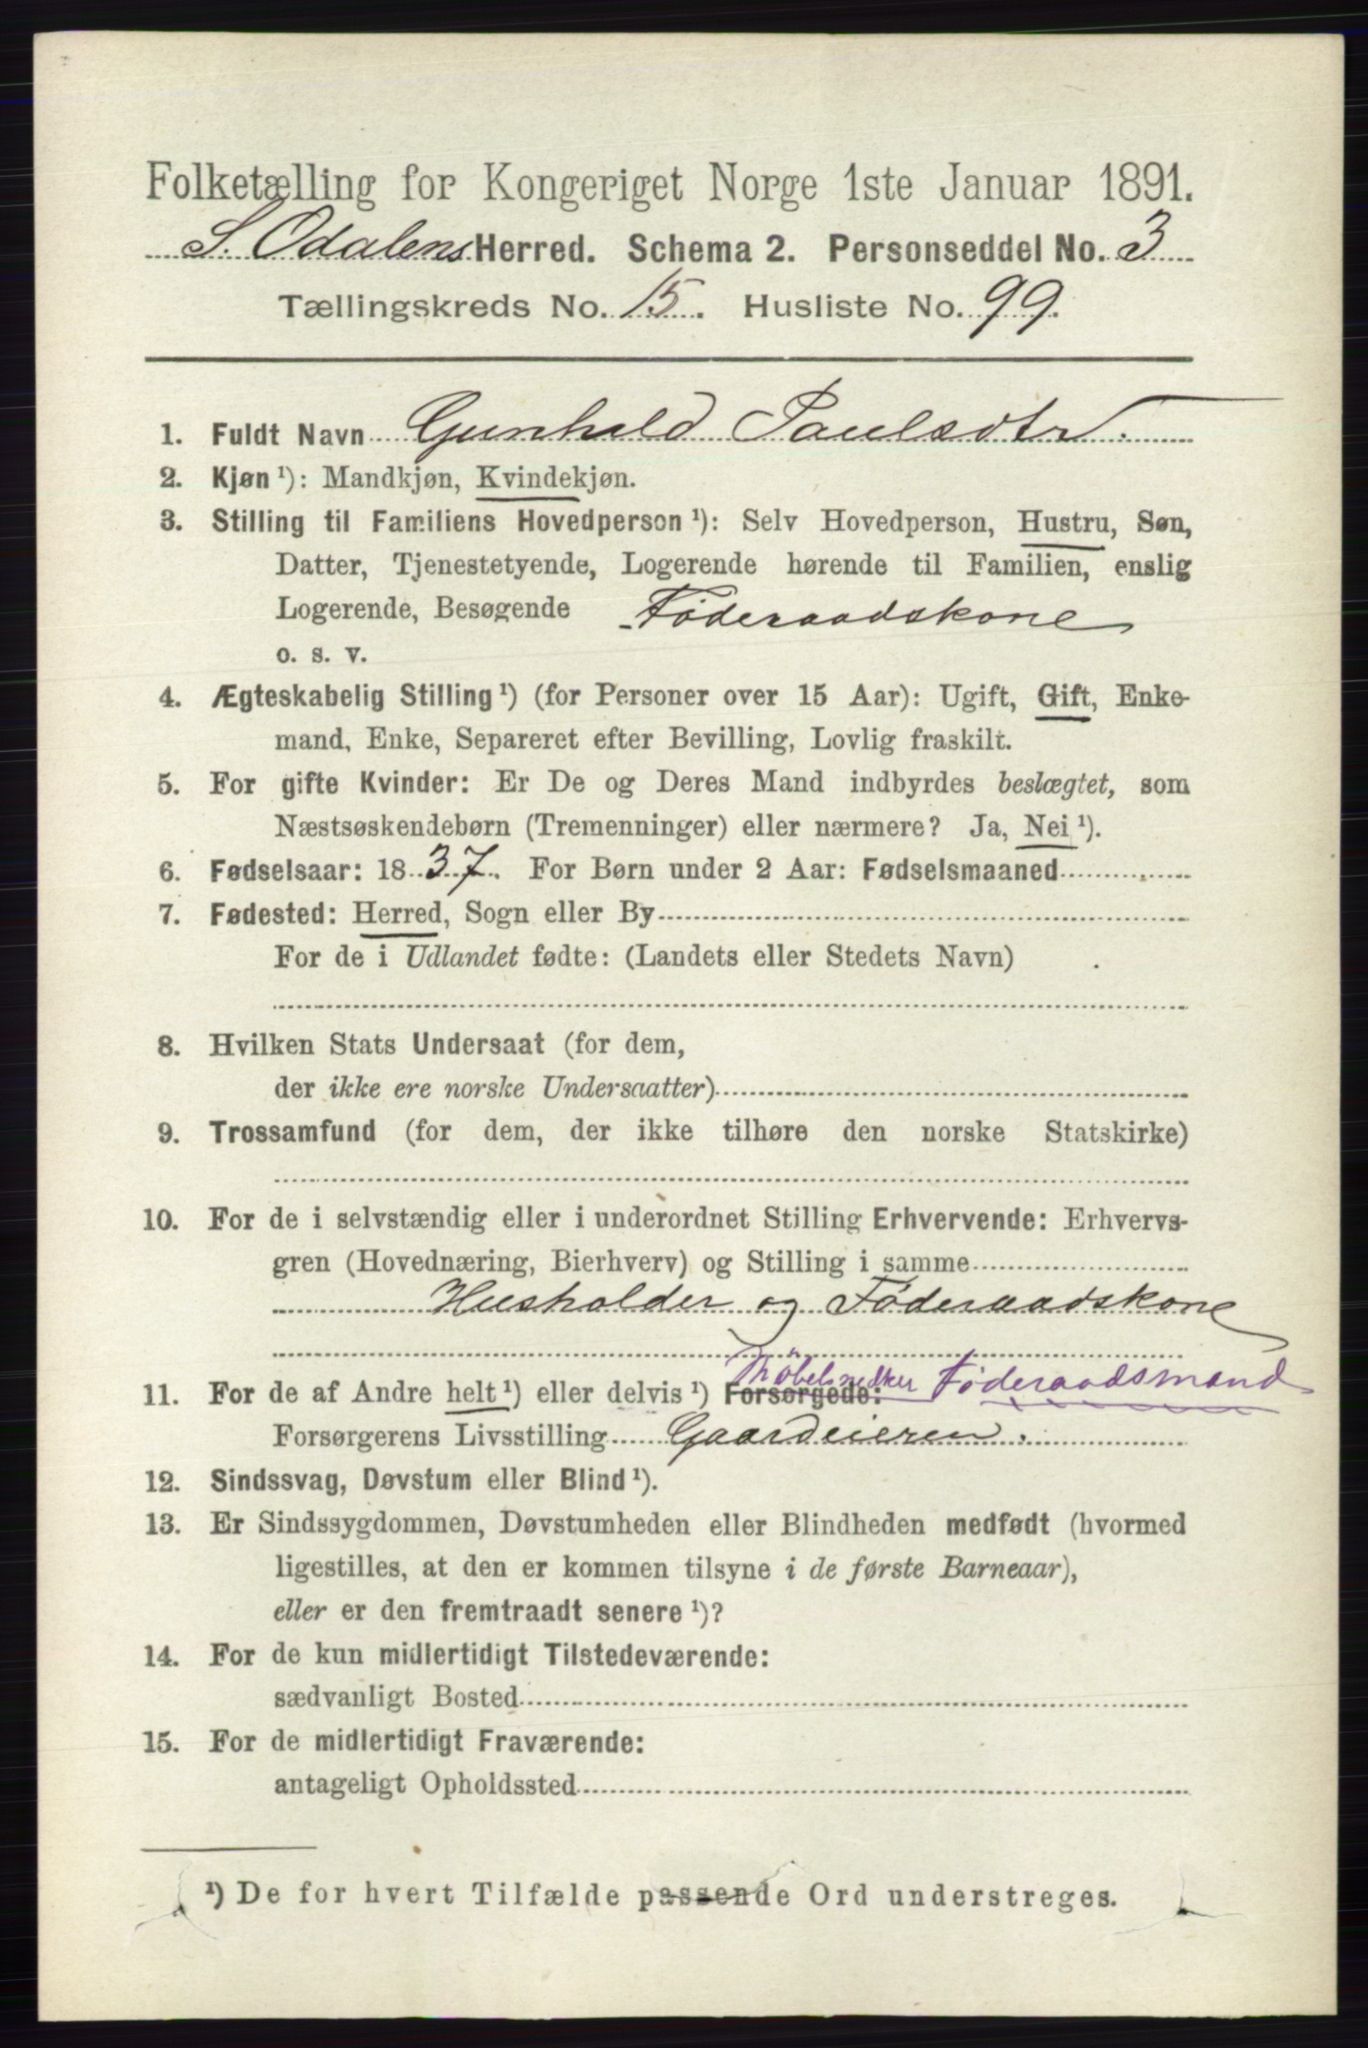 Folketælling for Kongeriget Norge 1ste Januar 1891.
S. Odalens Herred. Schema 2. Personseddel No. 3
Tællingskreds No. 15. Husliste No. 99.
1. Fuldt Navn Gunhild Paulsdtr.
2. Kjøn ¹): Mandkjøn, Kvindekjøn.
3. Stilling til Familiens Hovedperson ¹): Selv Hovedperson, Hustru, Søn,
Datter, Tjenestetyende, Logerende hørende til Familien, enslig
Logerende, Besøgende Føderaadskone
o. s. v.
4. Ægteskabelig Stilling ¹) (for Personer over 15 Aar): Ugift, Gift, Enke-
mand, Enke, Separeret efter Bevilling, Lovlig fraskilt.
5. For gifte Kvinder: Er De og Deres Mand indbyrdes beslægtet, som
Næstsøskendebørn (Tremenninger) eller nærmere? Ja, Nei ¹).
6. Fødselsaar: 1837. For Børn under 2 Aar: Fødselsmaaned
7. Fødested: Herred, Sogn eller By
For de i Udlandet fødte: (Landets eller Stedets Navn)
8. Hvilken Stats Undersaat (for dem,
der ikke ere norske Undersaatter)
9. Trossamfund (for dem, der ikke tilhøre den norske Statskirke)
10. For de i selvstændig eller i underordnet Stilling Erhvervende: Erhvervs-
gren (Hovednæring, Bierhverv) og Stilling i samme
Husholder og Føderaadskone
Føderaadsmand
11. For de af Andre helt ¹) eller delvis ¹) Forsørgede:
Forsørgerens Livsstilling Gaardeieren.
12. Sindssvag, Døvstum eller Blind ¹).
13. Er Sindssygdommen, Døvstumheden eller Blindheden medfødt (hvormed
ligestilles, at den er kommen tilsyne i de første Barneaar),
eller er den fremtraadt senere ¹)?
14. For de kun midlertidigt Tilstedeværende:
sædvanligt Bosted
15. For de midlertidigt Fraværende:
antageligt Opholdssted
¹) De for hvert Tilfælde passende Ord understreges.